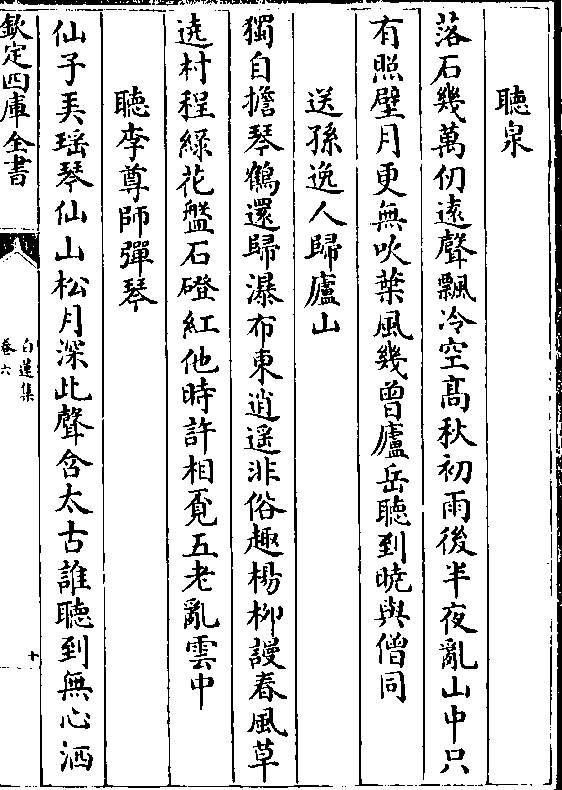 聽泉
落石幾萬仞遠聲飄冷空髙秋初雨後半夜亂山中只
有照壁月更無吹葉風幾曾廬岳聽到曉與僧同
送孫逸人歸廬山
獨自擔琴鶴還歸瀑布東逍遥非俗趣楊柳謾春風草
遶村程綠花盤石磴紅他時許相覓五老亂雲中
聽李尊師彈琴
仙子弄瑶琴仙山松月深此聲含太古誰聽到無心洒
欽定四庫全書
白蓮集
卷六
十